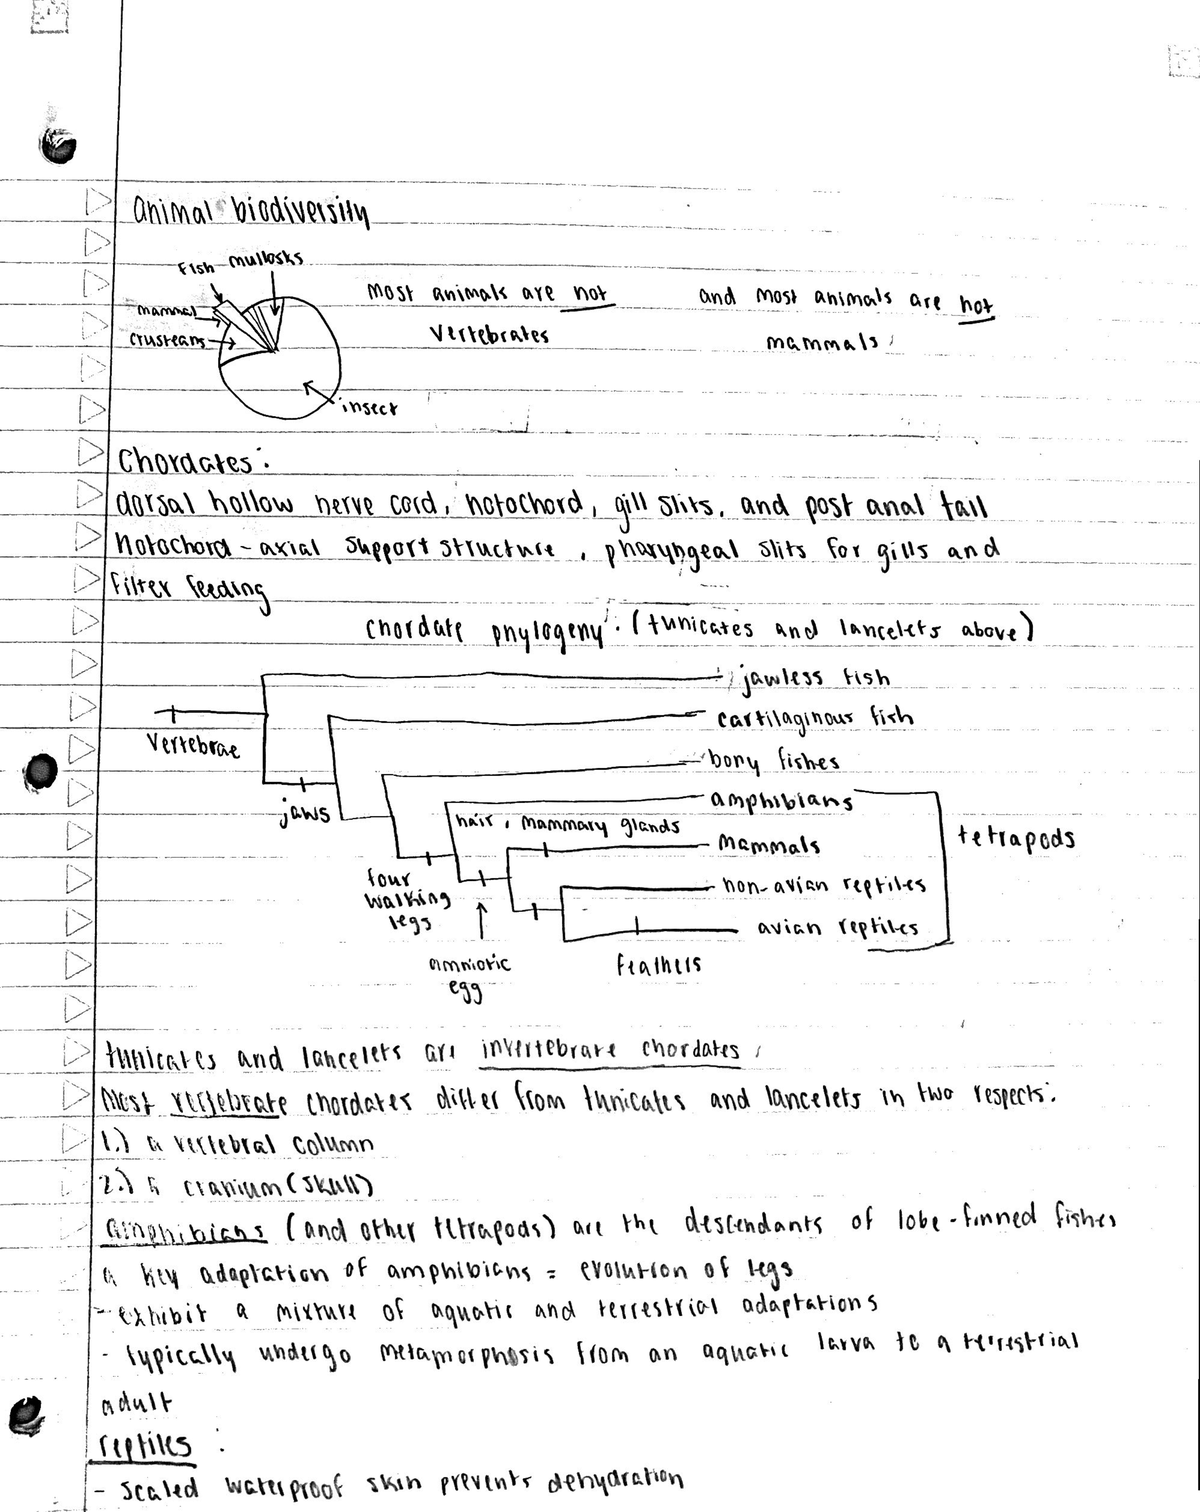 animal biodiversity
fish mullosks
mammal
crusteans
insect
most animals are not
vertebrates
and most animals are not
mammals
Chordates:
dorsal hollow nerve cord, notochord, gill slits, and post anal tail
notochord - axial support structure, pharyngeal slits for gills and
filter feeding
chordate phylogeny: (tunicates and lancelets above)
jawless fish
cartilaginous fish
vertebrae
bony fishes
amphibians
jaws
hair, mammary glands
tetrapods
mammals
four
walking
legs
non-avian reptiles
avian reptiles
amniotic
egg
feathers
tunicates and lancelets are invertebrate chordates
Most vertebrate chordates differ from tunicates and lancelets in two respects:
1.) a vertebral column
2.) a cranium (skull)
amphibians (and other tetrapods) are the descendants of lobe-finned fishes
a key adaptation of amphibians = evolution of legs
- exhibit a mixture of aquatic and terrestrial adaptations
- typically undergo metamorphosis from an aquatic larva to a terrestrial
adult
reptiles :
- scaled waterproof skin prevents dehydration